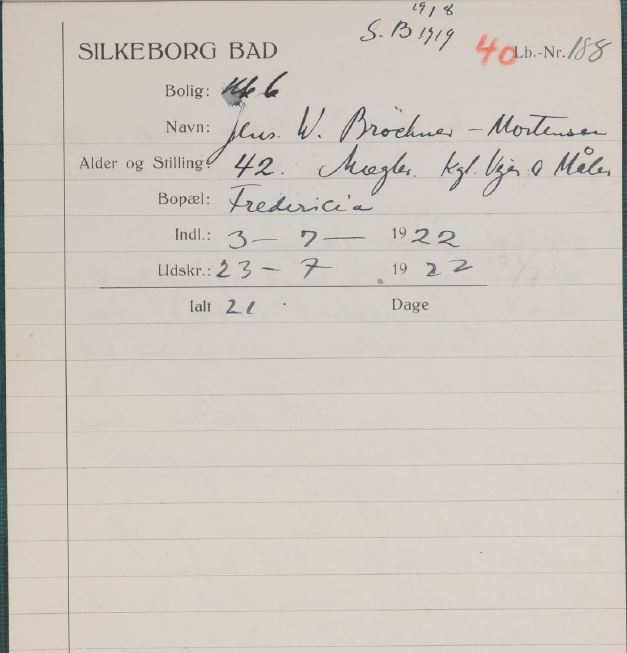 1918
S. B 1919
SILKEBORG BAD 40 Lb.-Nr. 188
Bolig: 6
Navn: Jens. W. Bröchner - Mortensen
Alder og Stilling: 42. Mægler. Kgl. Vejer & Måler
Bopæl: Fredericia
Indl.: 3 — 7 — 1922
Udskr.: 23 — 7 1922
Ialt 21 Dage